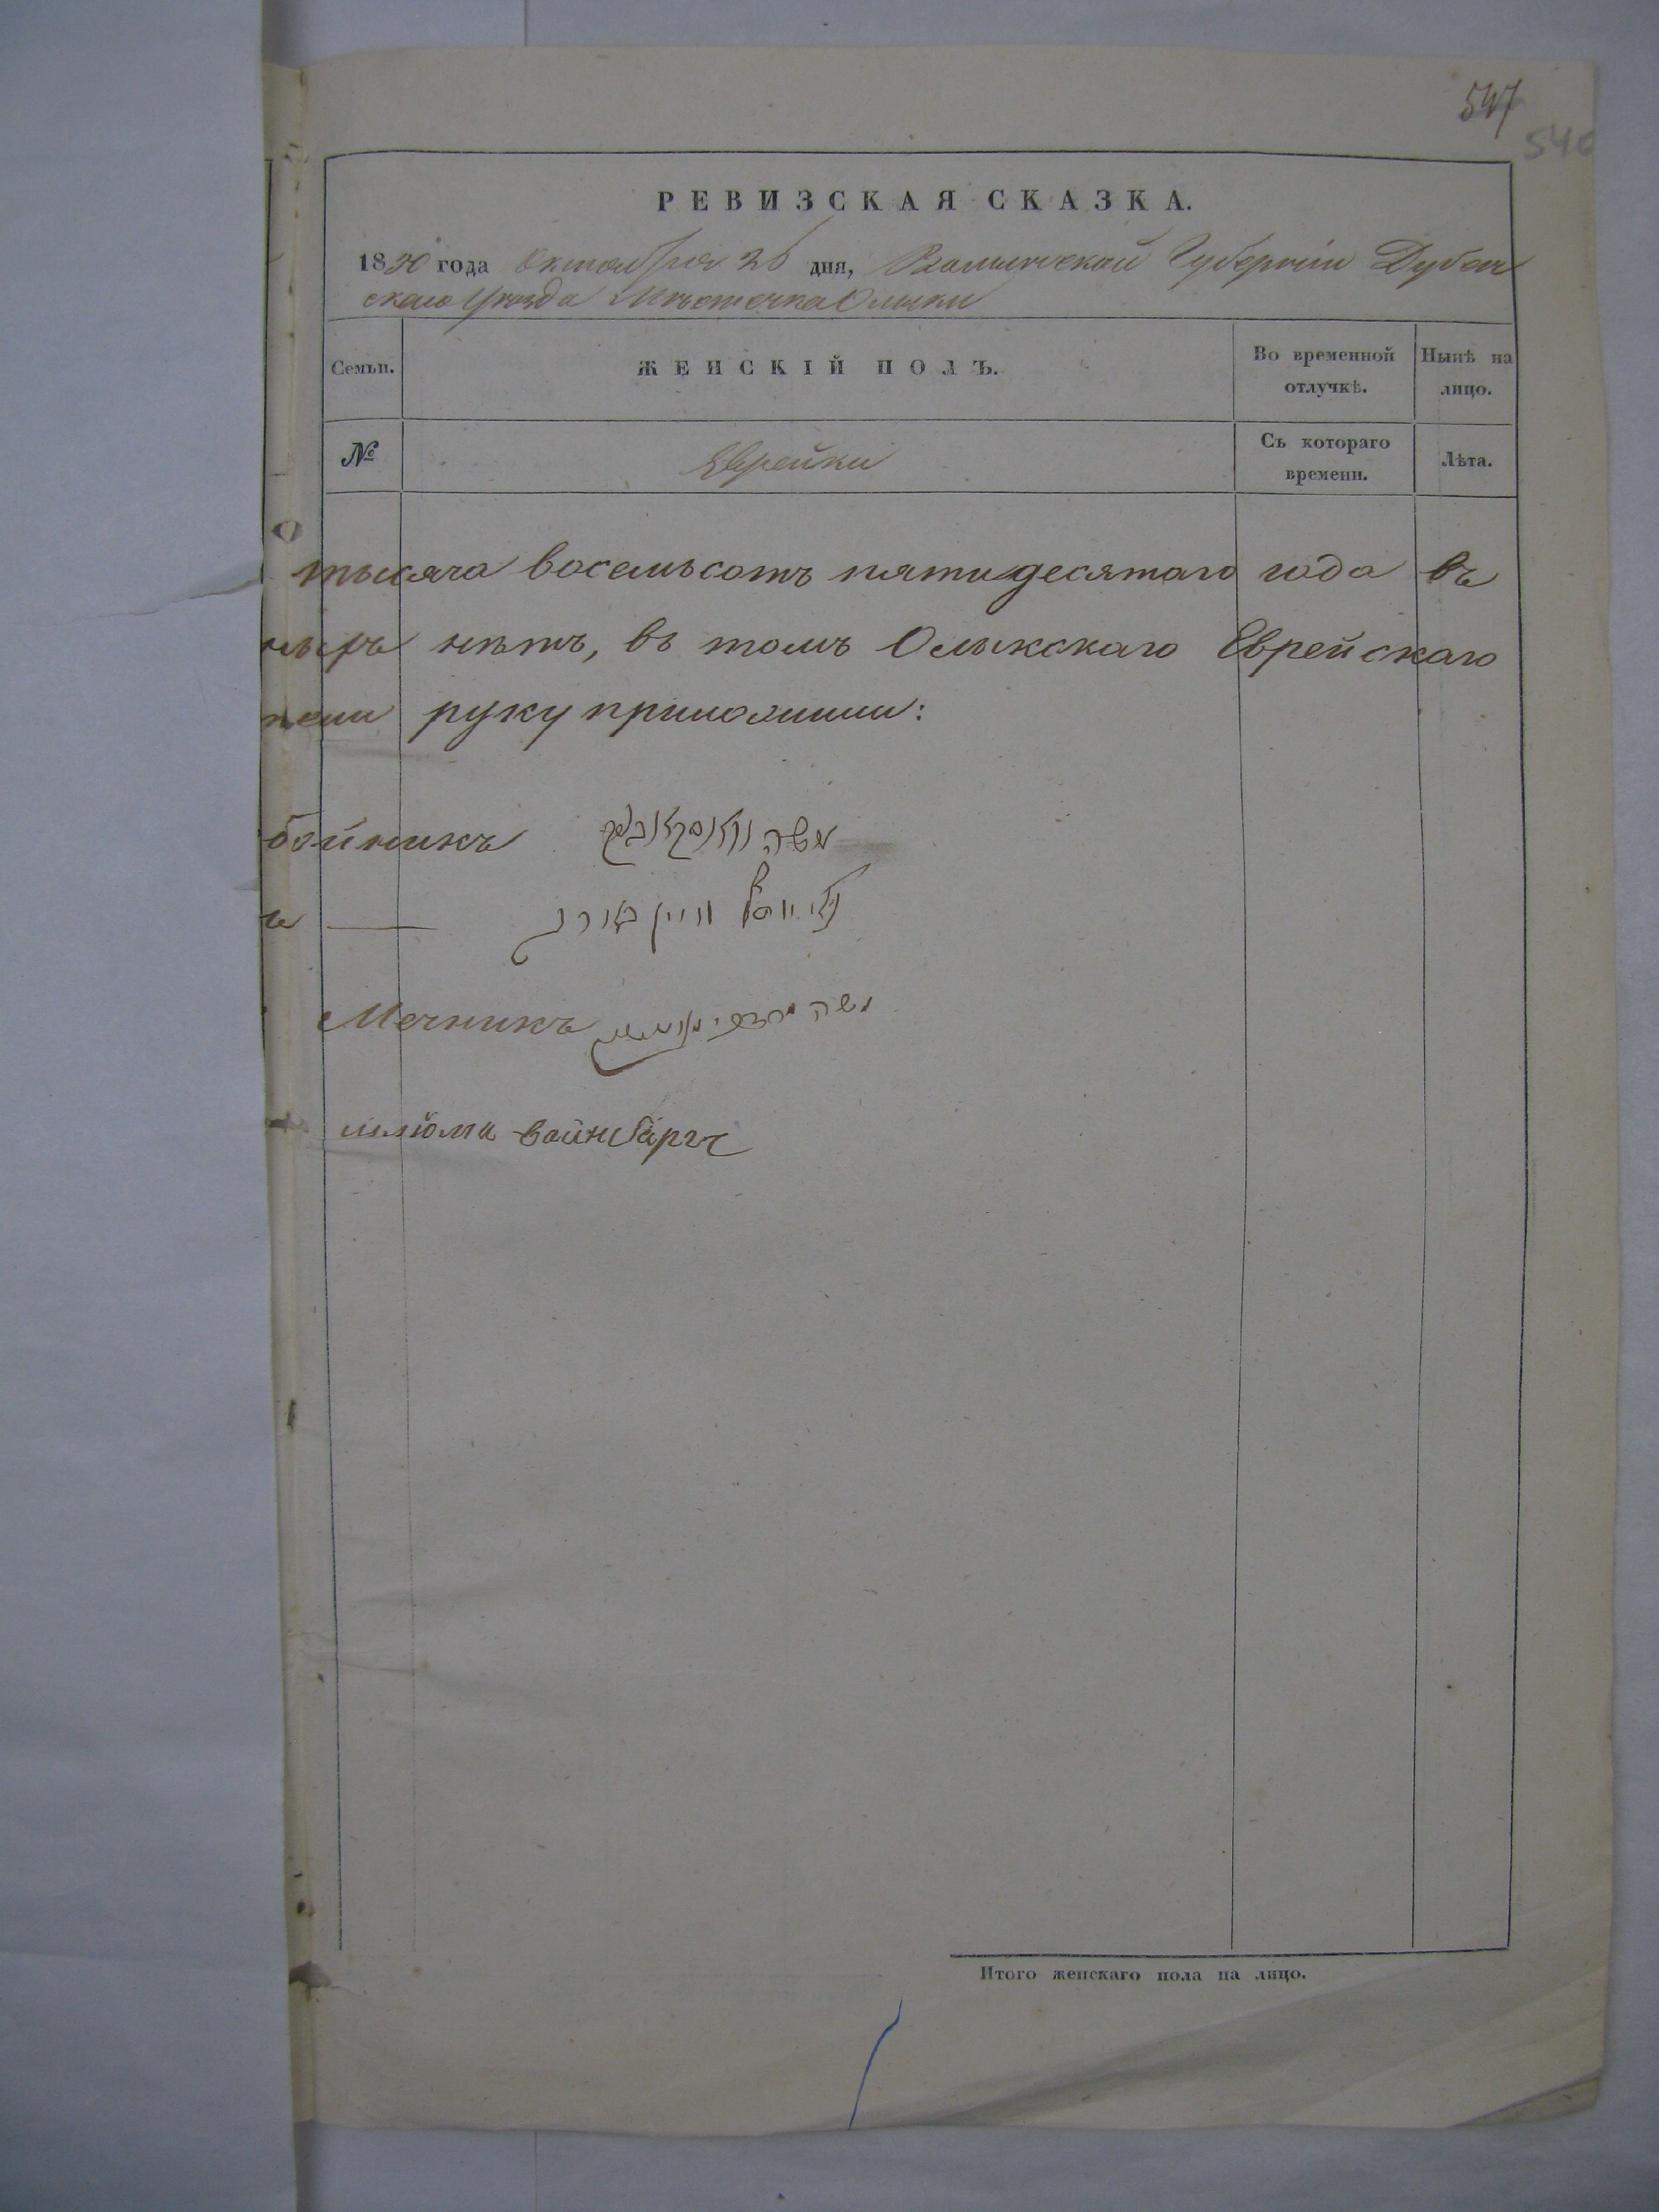 547
540
РЕВИЗСКАЯ СКАЗКА.
1850 года Октября 26 дня, Волынской Губерніи Дубен
скаго Уѣзда Мѣстечка Олыки
Семьи.
ЖЕНСКІЙ ПОЛЪ.
Во временной отлучкѣ.
Нынѣ на лицо.
№
Еврейки
Съ котораго времени.
Лѣта.
тысяча восемьсотъ пятидесятаго года въ
нѣтъ, въ томъ Олыкскаго Еврейскаго
руку приложили:
бойникъ משה
וויינבורג
Мечникъ משה מרדכי
шлиома вайнбаргъ
Итого женскаго пола на лицо.